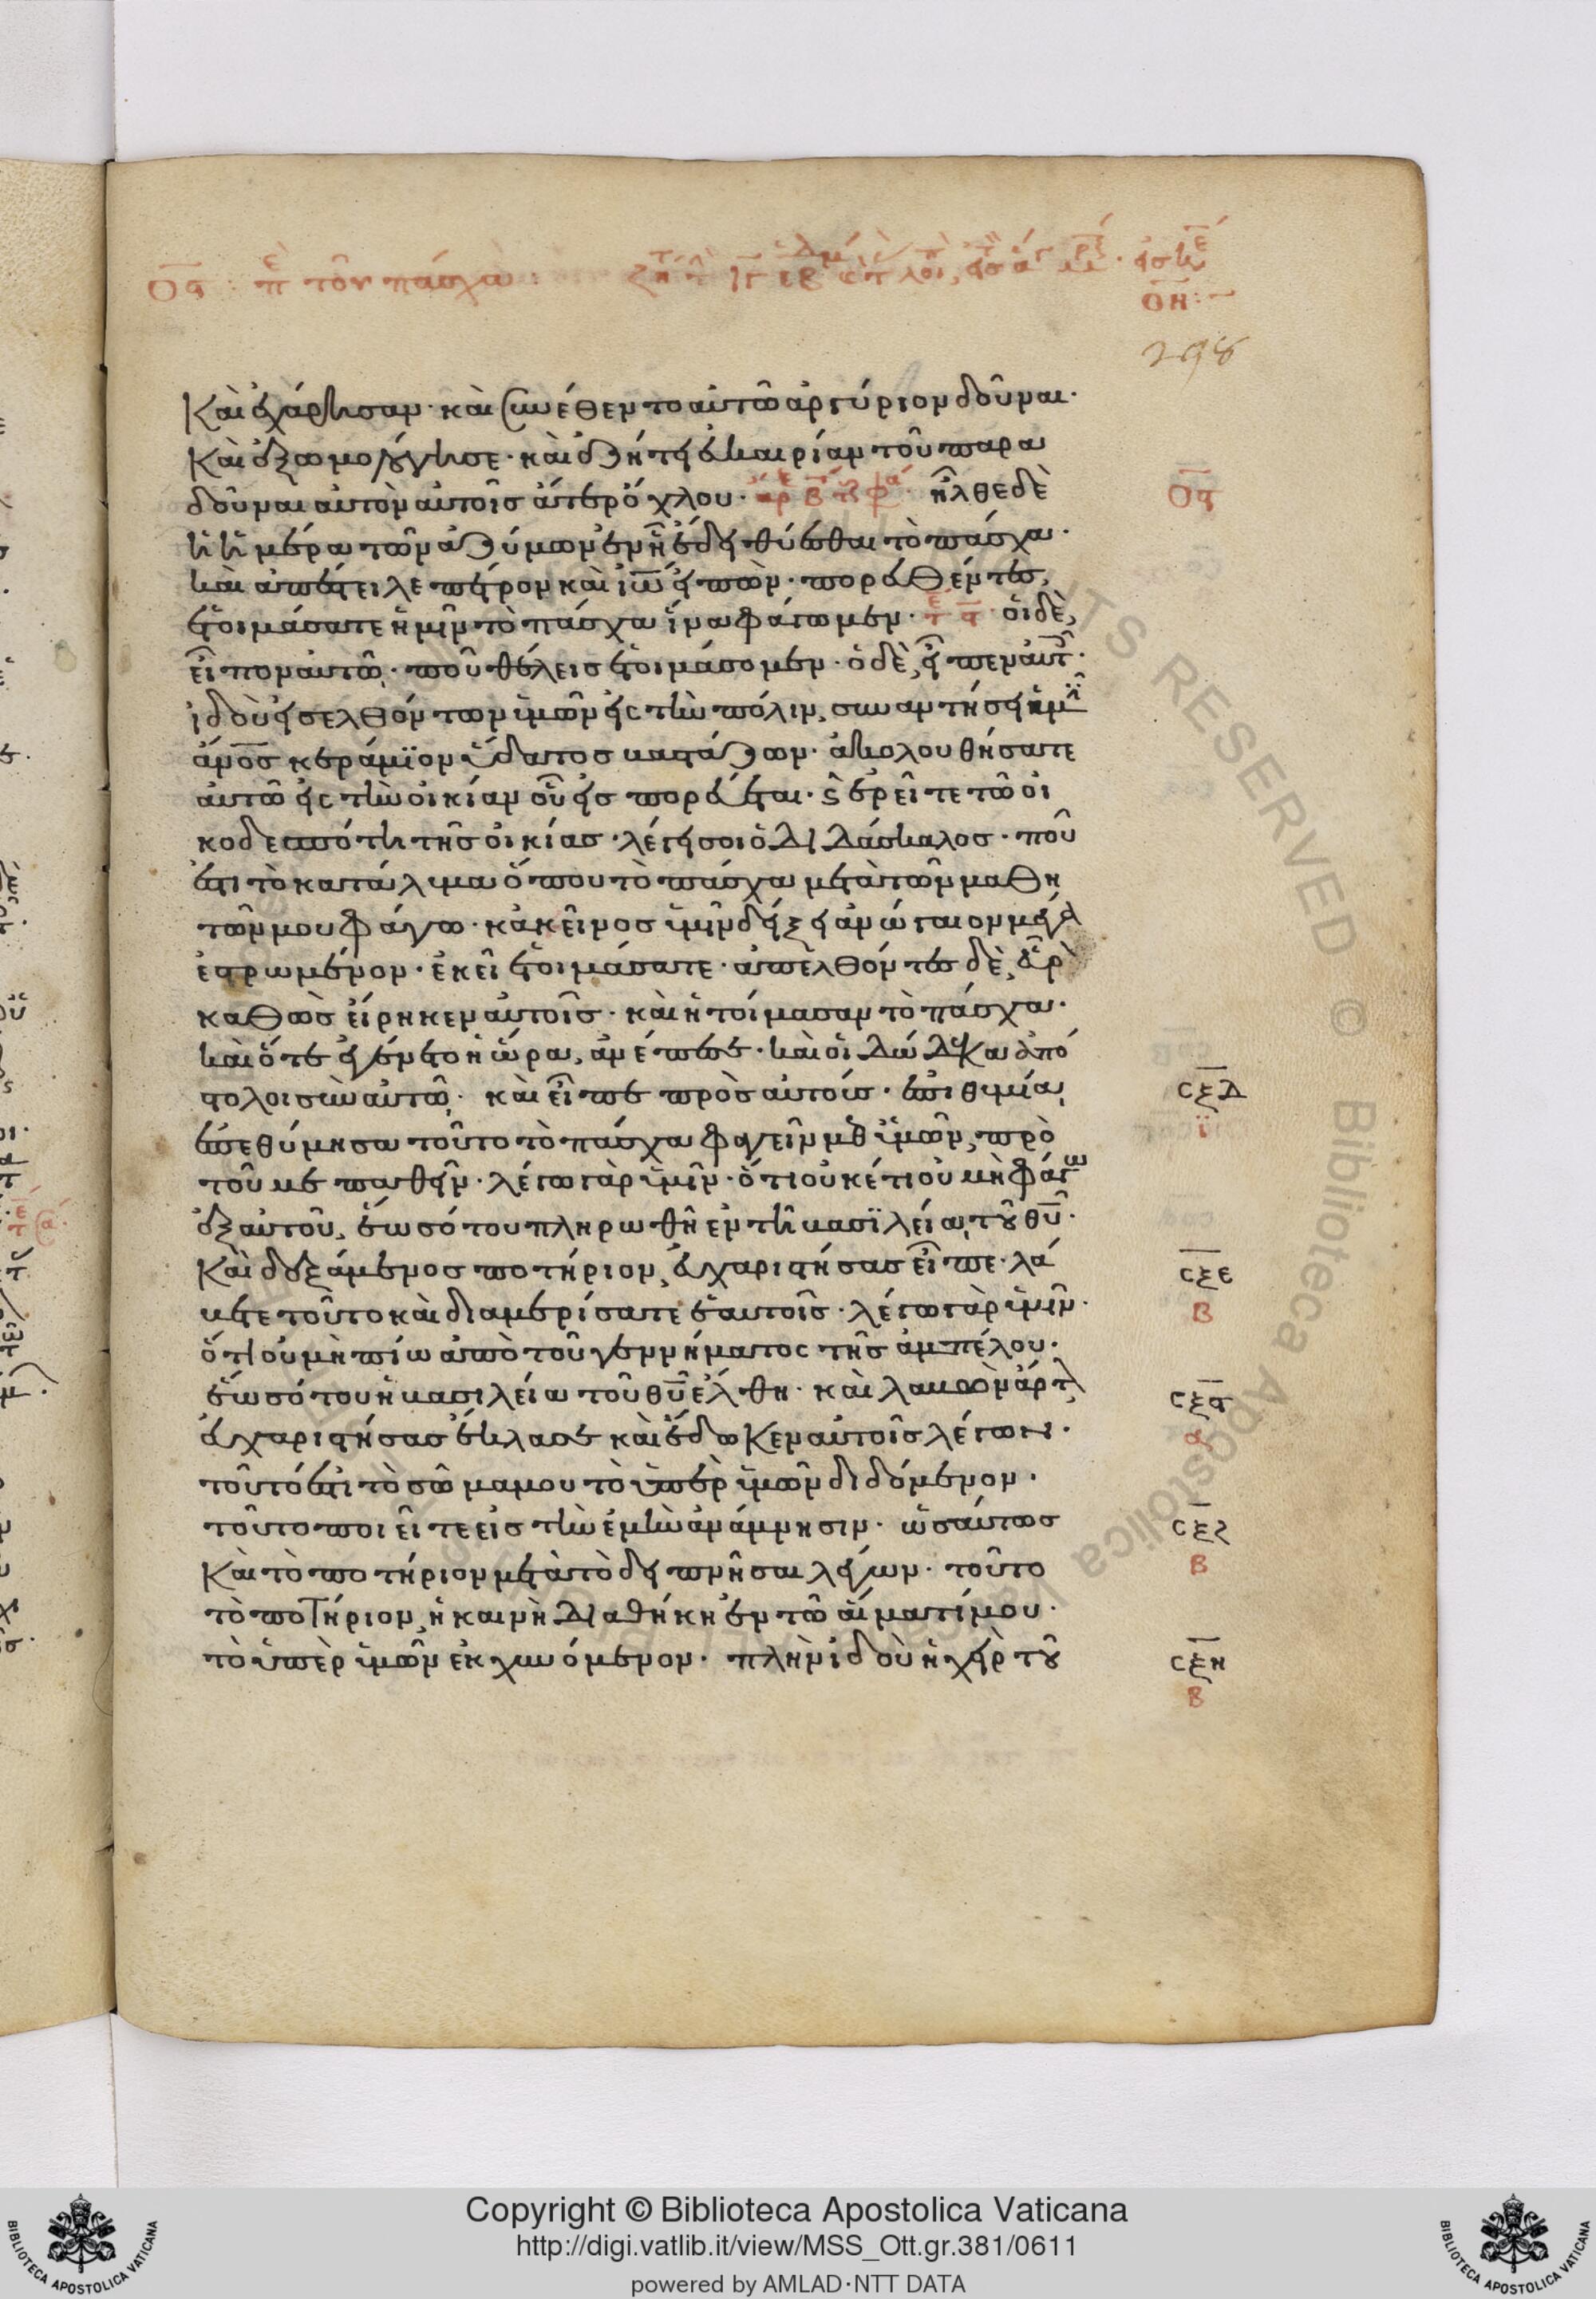 Ος : πε τὸν πάσχα :
ΟΗ :
298
Καὶ ἐχάρησαν· καὶ συνέθεντο αὐτῶ ἀργύριον δοῦναι·
Καὶ ἐξωμολόγησε· καὶ ἐζήτει εὐκαιρίαν τοῦ παρα
δοῦναι αὐτὸν αὐτοῖς ἄτερ ὄχλου· ἦλθε δὲ
ἡ ἡμέρα τῶν ἀζύμων ἐν ἧ ἔδει θύεσθαι τὸ πάσχα·
καὶ ἀπέστειλε πέτρον καὶ ἰω̅ εἰπὼν· πορευθέντες,
ἑτοιμάσατε ἡμῖν τὸ πάσχα ἵνα φάγωμεν· οἱ δὲ,
εἶπον αὐτῶ· ποῦ θέλεις ἑτοιμάσομεν· ὁ δὲ, εἶπεν αὐτ·
ἰδοὺ εἰσελθόντων ὑμῶν εἰς τὴν πόλιν, συναντήσει ἡμῖ
ἄνο̅ς κεράμϊον ὕδατος βαστάζων· ἀκολουθήσατε
αὐτῶ εἰς τὴν οἰκίαν οὗ εἰσπορεύεται· ϛ ἐρεῖτε τῶ οἰ
κοδεσπότη τῆς οἰκίας· λέγει σοι ὁ διδάσκαλος· ποῦ
ἐστι τὸ κατάλυμα ὅπου τὸ πάσχα μετὰ τῶν μαθη
τῶν μου φάγω· κἀκεῖνος ὑμῖν δείξει ἀνώγαιον μέγ
ἐστρωμένον· ἐκεῖ ἑτοιμάσατε· ἀπελθόντες δὲ, εὗρ
καθὼς εἴρηκεν αὐτοῖς· καὶ ἡτοίμασαν τὸ πάσχα·
καὶ ὅτε ἐγένετο ἡ ὥρα, ἀνέπεσε· καὶ οἱ δώδεκα ἀπό
στολοι σὺν αὐτῶ· καὶ εἶπε πρὸς αὐτούς· ἐπιθυμία
ἐπεθύμησα τοῦτο τὸ πάσχα φαγεῖν μεθ ὑμῶν, πρὸ
τοῦ με παθεῖν· λέγω γὰρ ὑμῖν· ὅτι οὐκέτι οὐ μὴ φάγω
ἐξ αὐτοῦ, ἕως ὅτου πληρωθῆ ἐν τῆ βασϊλεία τοῦ θυ̅·
Καὶ δεξάμενος ποτήριον, εὐχαριστήσας εἶπε· λά
βετε τοῦτο καὶ διαμερίσατε ἑαυτοῖς· λέγω γὰρ ὑμῖν·
ὅτι οὐ μὴ πίω ἀπὸ τοῦ γεννήματος τῆς ἀμπέλου·
ἕως ὅτου ἡ βασιλεία τοῦ θυ̅ ἔλθη· καὶ λαβὼν ἄρτ
εὐχαριστήσας ἔκλασε καὶ ἔδωκεν αὐτοῖς λέγων·
τοῦτό ἐστι τὸ σῶμα μου τὸ ὑπὲρ ὑμῶν διδόμενον·
τοῦτο ποιεῖτε εἰς τὴν ἐμὴν ἀνάμνησιν· ὡσαύτως
Καὶ τὸ ποτήριον μετὰ τὸ δειπνῆσαι λέγων· τοῦτο
τὸ ποτήριον, ἡ καινὴ διαθήκη ἐν τῶ αἵματί μου·
τὸ ὑπὲρ ὑμῶν ἐκχυνόμενον· πλὴν ἰδοὺ ἡ χεὶρ τοῦ
Ος
CΞΔ
ϊ
CΞΕ
Β
CΞϛ
α
CΞΖ
Β
CΞΗ
Β
Copyright © Biblioteca Apostolica Vaticana
http://digi.vatlib.it/view/MSS_Ott.gr.381/0611
powered by AMLAD·NTT DATA
BIBLIOTECA APOSTOLICA VATICANA
BIBLIOTECA APOSTOLICA VATICANA